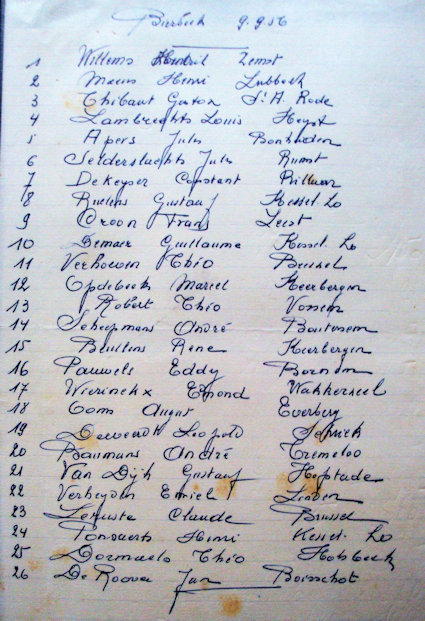 Bierbeek 9.9.56
1 Willems Hendrik Zemst
2 Meeus Henri Lubbeek
3 Thibaut Gaston St. A. Rode
4 Lambrechts Louis Heyst
5 Apers Jules Bonheiden
6 Selderslaghs Jules Rumst
7 De Keyser Constant Rillaar
8 Ruelens Gustaaf Kessel. Lo
9 Croon Frans Leest
10 Demaer Guillaume Kessel. Lo
11 Verhoeven Théo Beersel
12 Opdebeeck Marcel Keerbergen
13 Robert Théo Vossem
14 Schepmans André Boutersem
15 Beullens Rene Keerbergen
16 Pauwels Eddy Bornem
17 Wierinckx Edmond Wakkerzeel
18 Coms August Everberg
19 Leopold Schriek
20 Baumans André Tremeloo
21 Van Dijk Gustaaf Hofstade
22 Verheyden Emiel Linden
23 Claude Brussel
24 Ponsaerts Henri Kessel. Lo
25 Dormaels Théo Holsbeek
26 De Roover Jan Boisschot